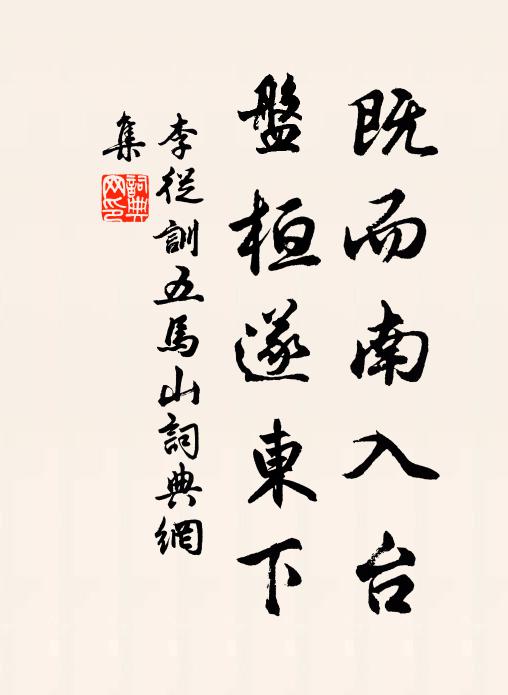 既而南入台
盤桓遂東下
李從訓五馬山詞典網
集
詞典
網印